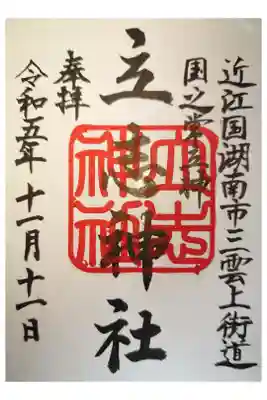 近江国湖南市三雲上街道
国之常立神
立志神社
立志
神社
奉拝
令和五年十一月十一日